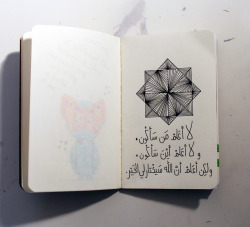 لا أعلم من سأكون.
و لا أعلم أين سأكون.
ولكن أعلم أن الله سيختار لي الخير.